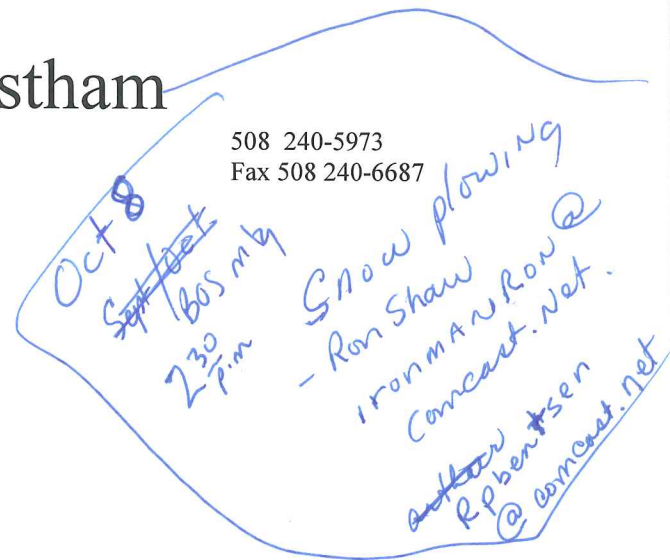 stham
508 240-5973
Fax 508 240-6687
Oct 8
Sept/Oct
BOS mtg
2 30 p.m
Snow plowing
- Ron Shaw
ironMANRON@
Comcast.Net.
Rpbentsen
@comcast.net